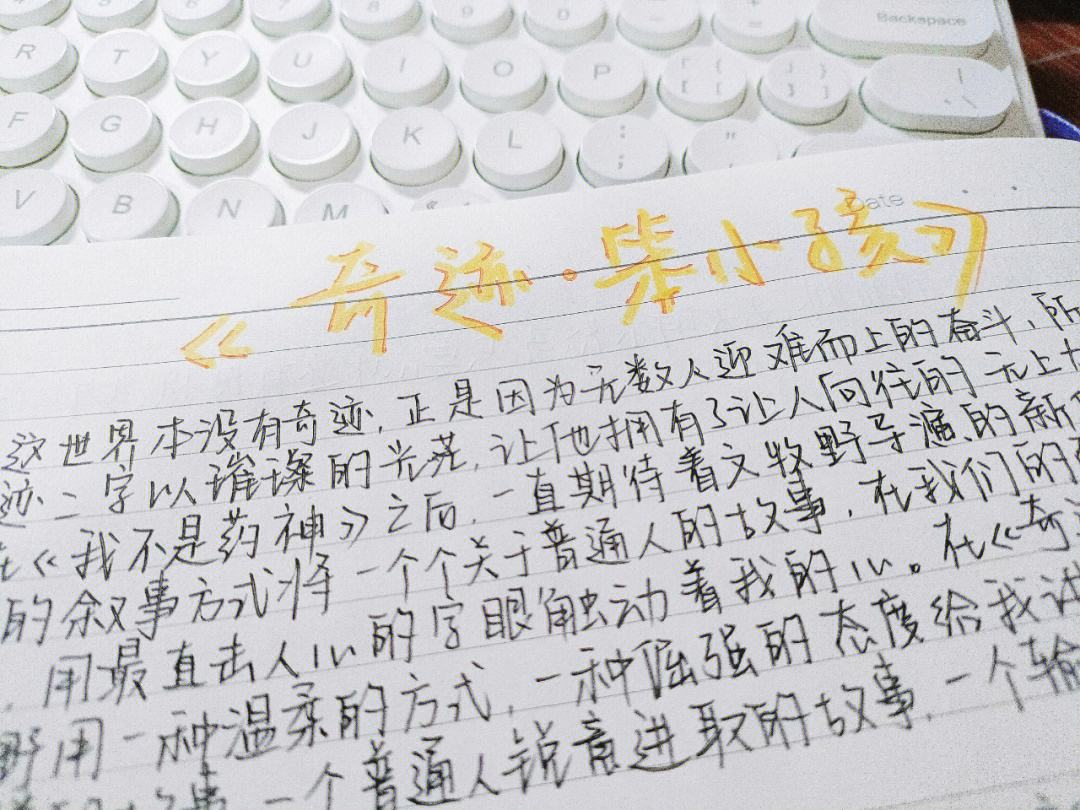 - _
+ =
Backspace
R T Y U I O P { [ } ] | \
F G H J K L : ; "
V B N M
Date
《奇迹·笨小孩》
这世界本没有奇迹,正是因为无数人迎难而上的奋斗,所
迹二字以璀璨的光芒,让他拥有了让人向往的无上
在《我不是药神》之后,一直期待着文牧野导演的新
的叙事方式将一个个关于普通人的故事,在我们的
,用最直击人心的字眼触动着我的心。在《奇迹
野用一种温柔的方式,一种倔强的态度给我讲
故事,一个普通人锐意进取的故事,一个输